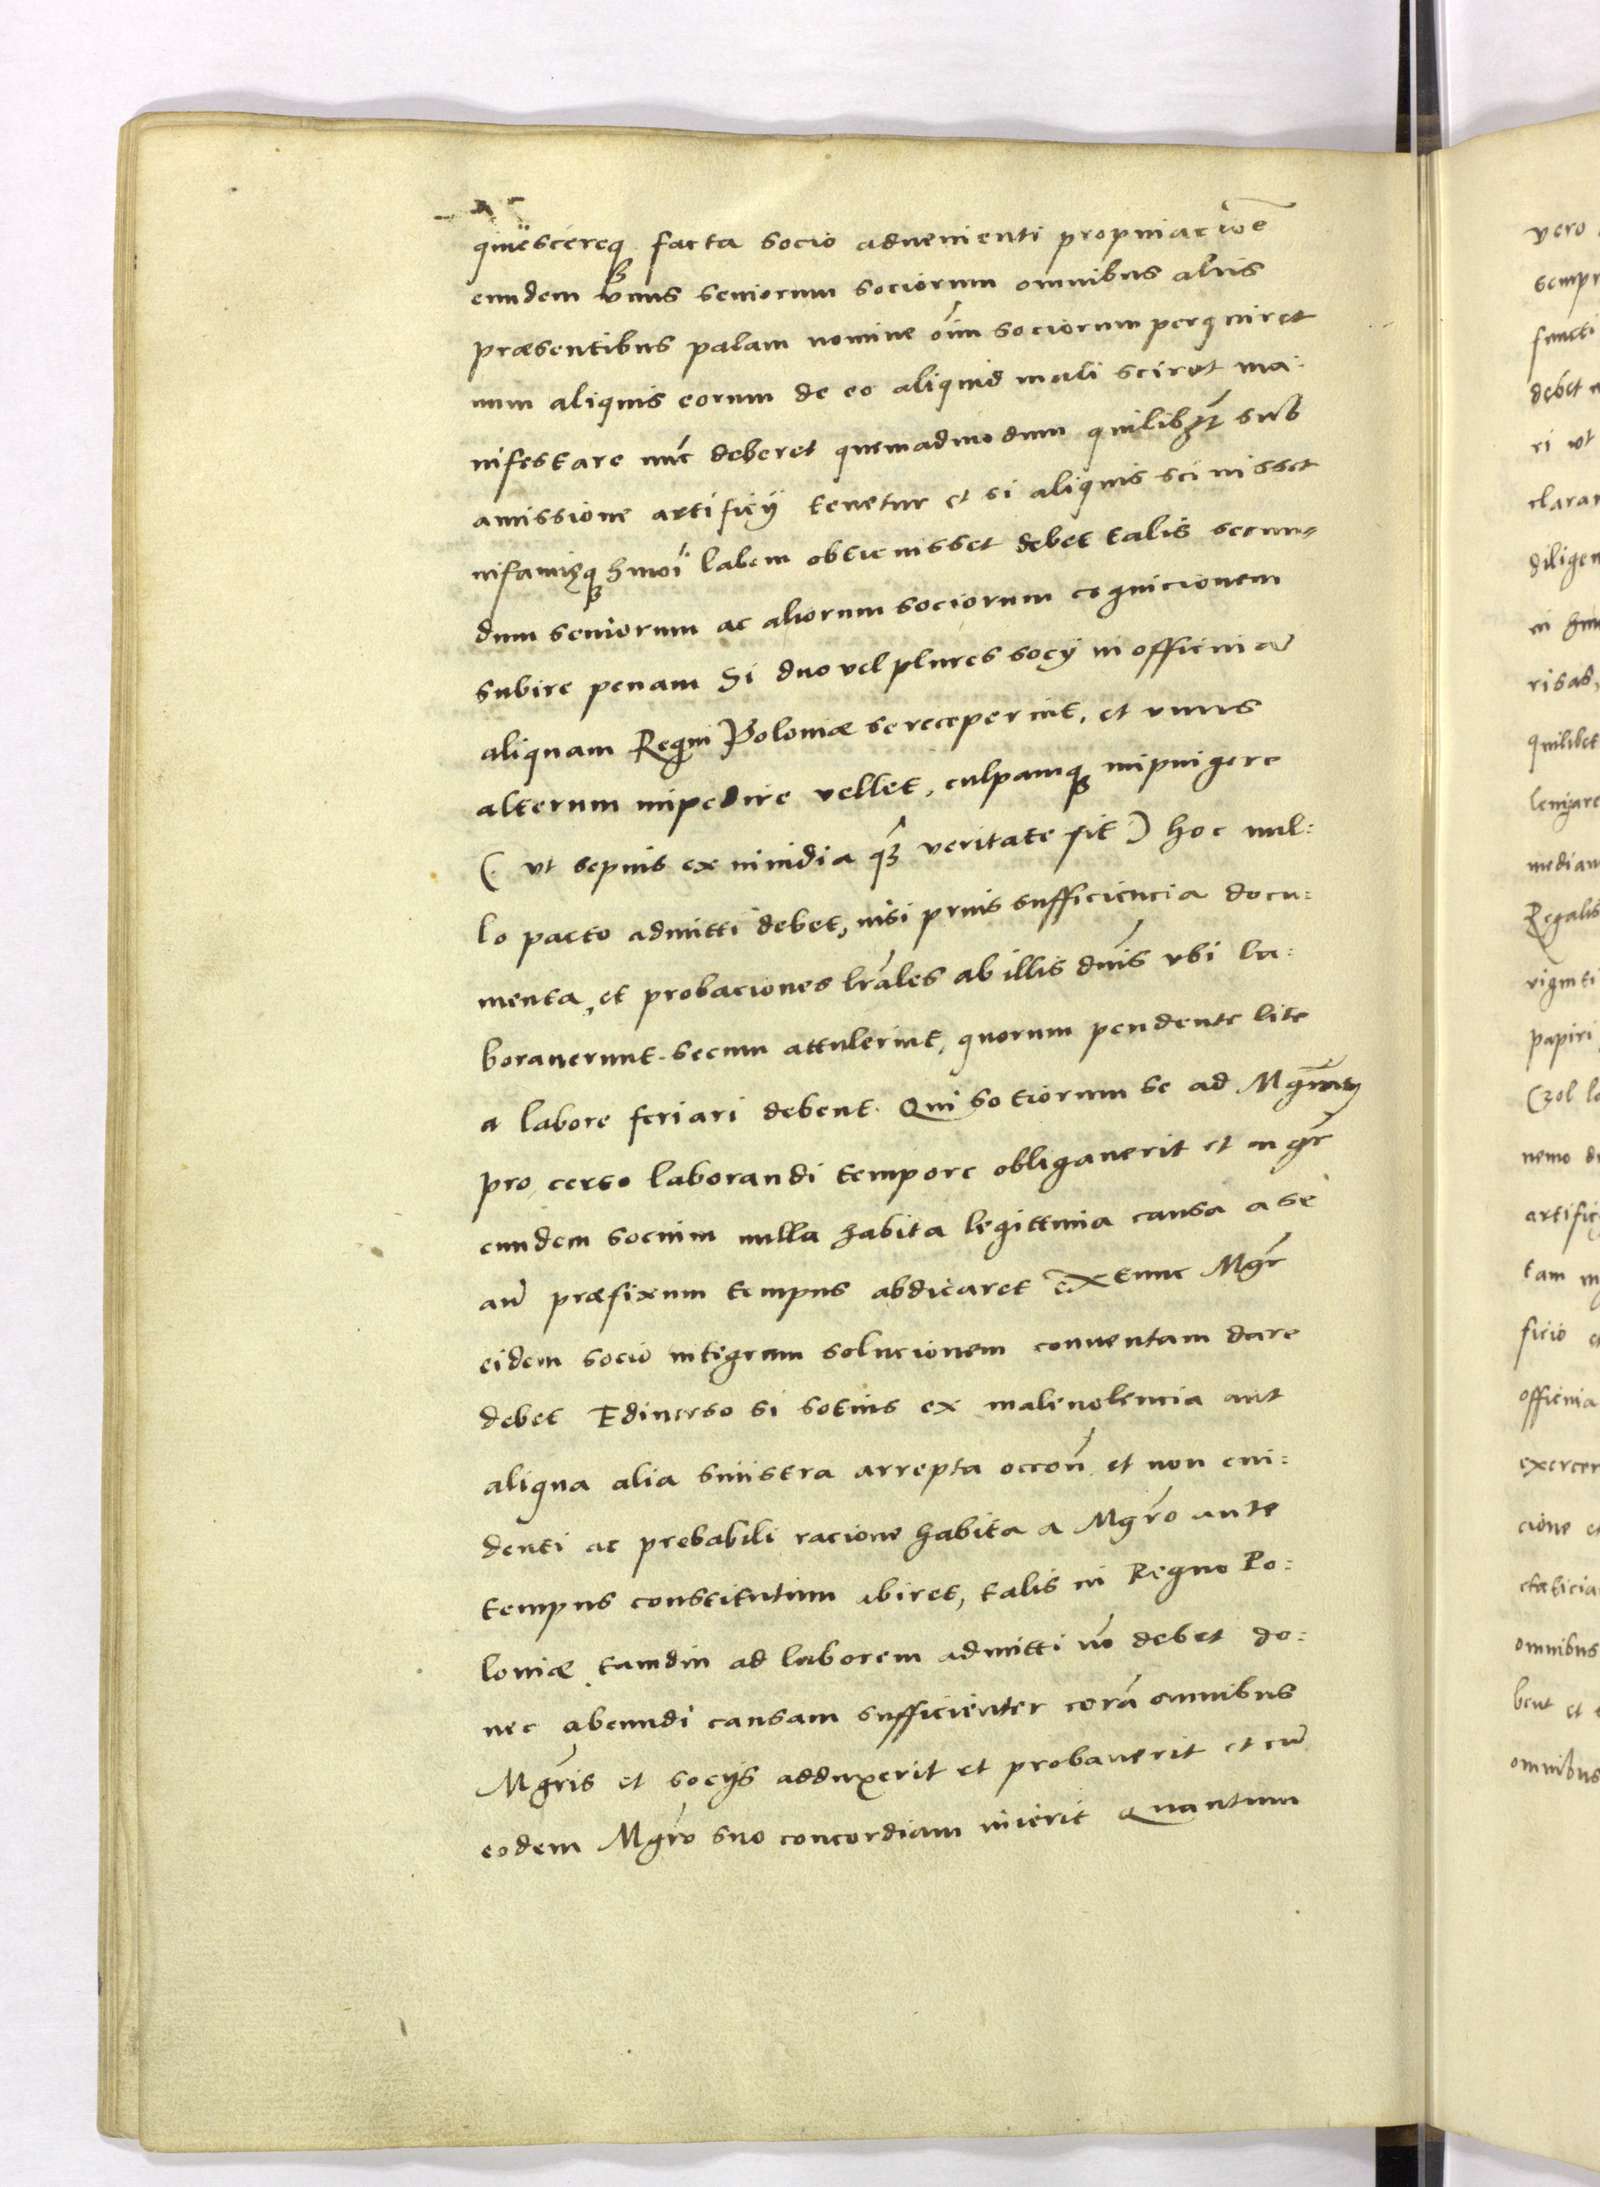 quiescereq facta socio advenienti propinacioe
eundem unus seniorum sociorum omnibus aliis
præsentibus palam nomine oim sociorum perquiret
num aliquis eorum de eo aliquid mali sciret ma:
nifestare nuc deberet quemadmodum quilibet sub
amissione artificij tenetur et si aliquis scivisset
infamięq hmoi labem obticuisset debet talis secun=
dum seniorum ac aliorum sociorum cognicionem
subire penam Si duo vel plures socij in officina
aliquam Regni Poloniæ se receperint, et unus
alterum impedire vellet, culpamq impingere
(ut sepius ex invidia qz veritate fit) hoc nul:
lo pacto admitti debet, nisi prius sufficiencia docu:
menta, et probaciones lrales ab illis dnis ubi la:
boraverunt secum attulerint, quorum pendente lite
a labore feriari debent. Qui sotiorum se ad
pro certo laborandi tempore obligaverit et mgr
eundem socium nulla habita legittima causa a se
an præfixum tempus abdicaret extunc Mgr
eidem socio integram solucionem conventam dare
debet E diverso si sotius ex malevolencia aut
aliqua alia sinistra arrepta occon et non evi:
denti ac probabili racione habita a Mgro ante
tempus constitutum abiret, talis in Regno Po:
loniæ tamdiu ad laborem admitti no debet do:
nec abeundi causam sufficienter cora omnibus
Mgris et socijs adduxerit et probaverit et cu
eodem Mgro suo concordiam inierit Quantum
vero
sempr
functi
debet
ri ut
claran
diligen
in
risas,
quilibet
mediam
Regalis
viginti
papiri
nemo
artific
tam
ficio
officina
exercer
cione
omnibus
bent et
omnibus